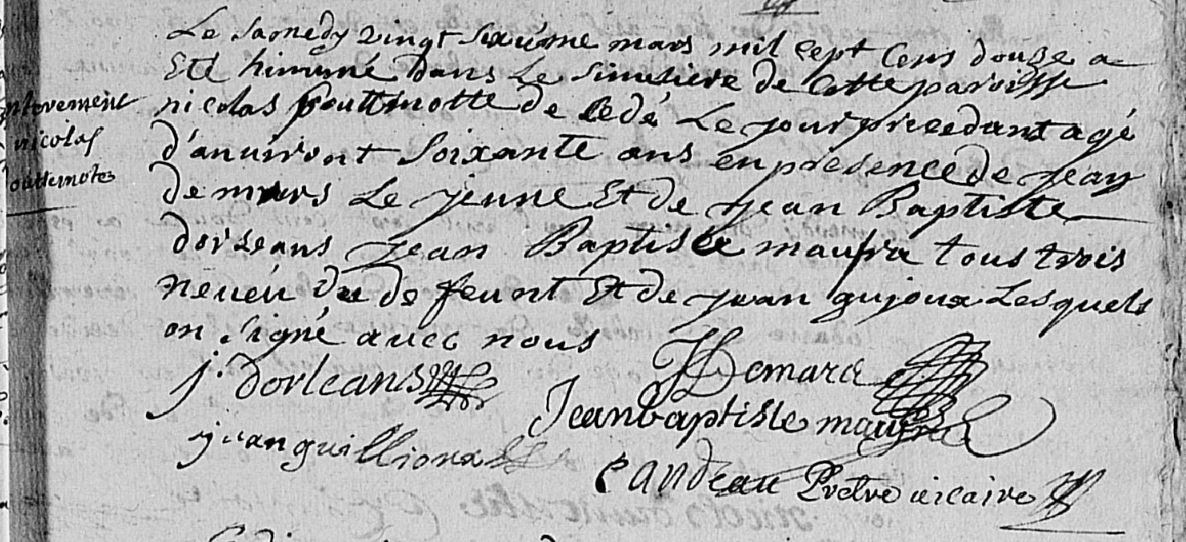 Le Samedy vingt sixiéme mars mil sept Cens douze a
Eté himumé dans Le Simetiere de Cette paroisse
nicolas pouttmotte de cedé Le jour preedant agé
d'anuiront Soixante ans en presence de jean
de mars Le jeune Et de jean Baptiste
dorleans jean Baptiste maufra tous trois
neveu du de feunt Et de jean gujoux Lesquels
on Signé avec nous
nicolas
j. Dorleans
Demare
Jean baptiste
jean guillioux
Prétre vicaire